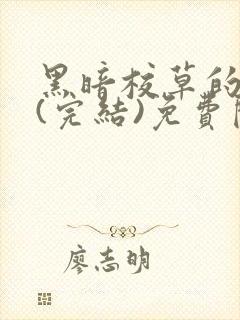 黑暗校草的
(完結)免費
廖志明